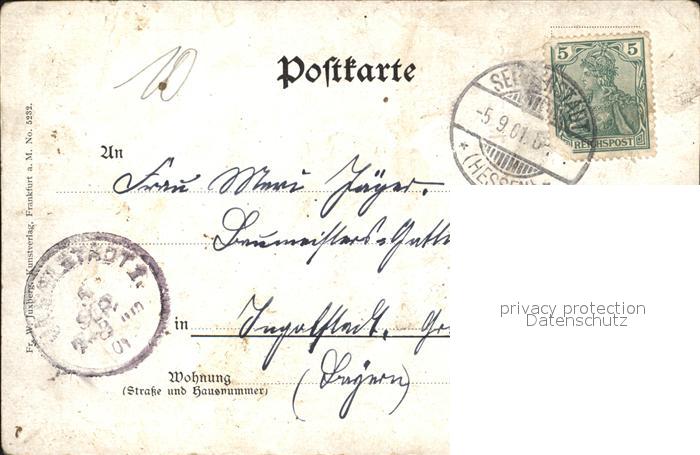 Postkarte
5 5
REICHSPOST
-5.9.01.
(HESSEN)
An
Frau Meri Jäger.
Baumeisters-Gatt
in Ingolstadt.
(Bayern)
Wohnung
(Straße und Hausnummer)
Fr. W. Juxberg, Kunstverlag, Frankfurt a. M. No. 5232.
privacy protection
Datenschutz